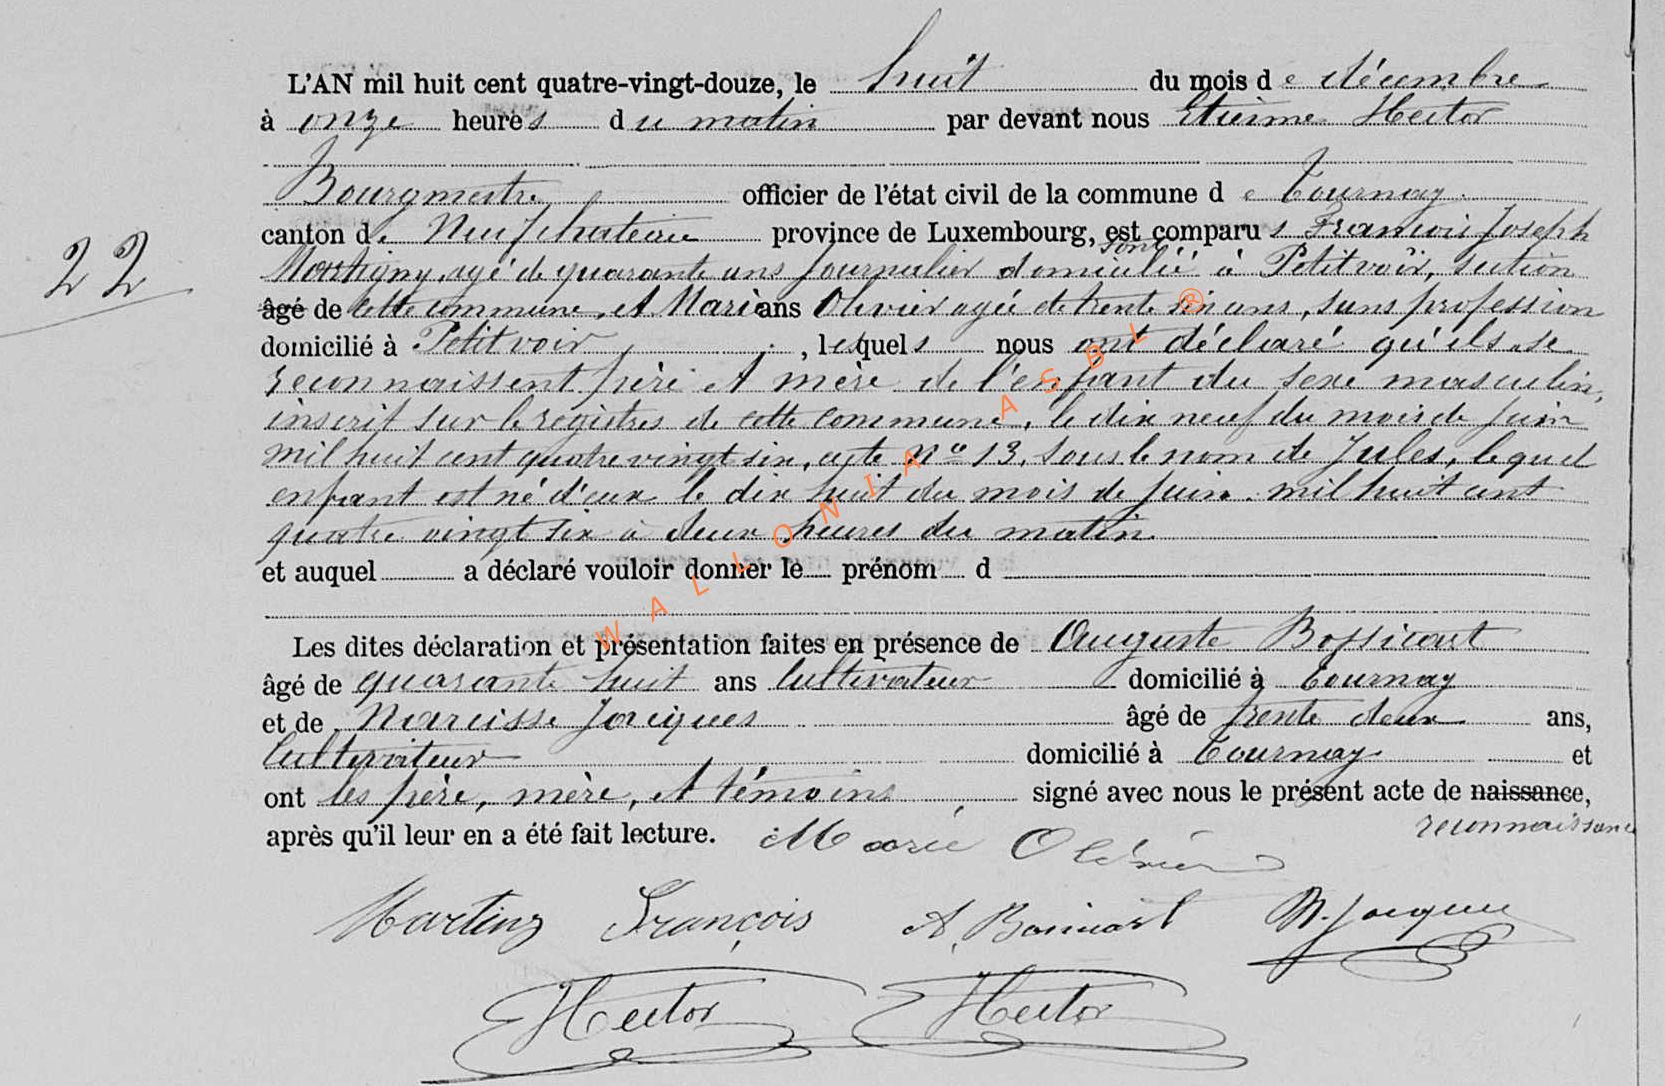 L'AN mil huit cent quatre-vingt-douze, le huit du mois de décembre
à onze heures du matin par devant nous Etienne Hector
Bourgmestre officier de l'état civil de la commune de Tournay
canton de Neufchateau province de Luxembourg, est comparus François Joseph
sont
agé de quarante ans Journalier domicilié à Petitvoir, section
âgé de cette commune, et Marie ans Olivier agée de trente six ans, sans profession
domicilié à Petitvoir, lesquels nous ont déclaré qu'ils se
reconnaissent père et mère de l'enfant du sexe masculin,
inscrit sur le registres de cette commune, le dix neuf du mois de juin
mil huit cent quatre vingt six, acte No 13, sous le nom de Jules, lequel
enfant est né d'eux le dix huit du mois de juin mil huit cent
quatre vingt six à deux heures du matin.
et auquel a déclaré vouloir donner le prénom d
Les dites déclaration et présentation faites en présence de Auguste Bossicart
âgé de quarante huit ans Cultivateur domicilié à Tournay
et de Narcisse Jacques âgé de trente deux ans,
Cultivateur domicilié à Tournay et
ont les père, mère, et témoins signé avec nous le présent acte de naissance,
reconnaissance
après qu'il leur en a été fait lecture. Marie Olivier
22
François A. N. Jacques
Hector Hector
WALLONIA ASBL ®